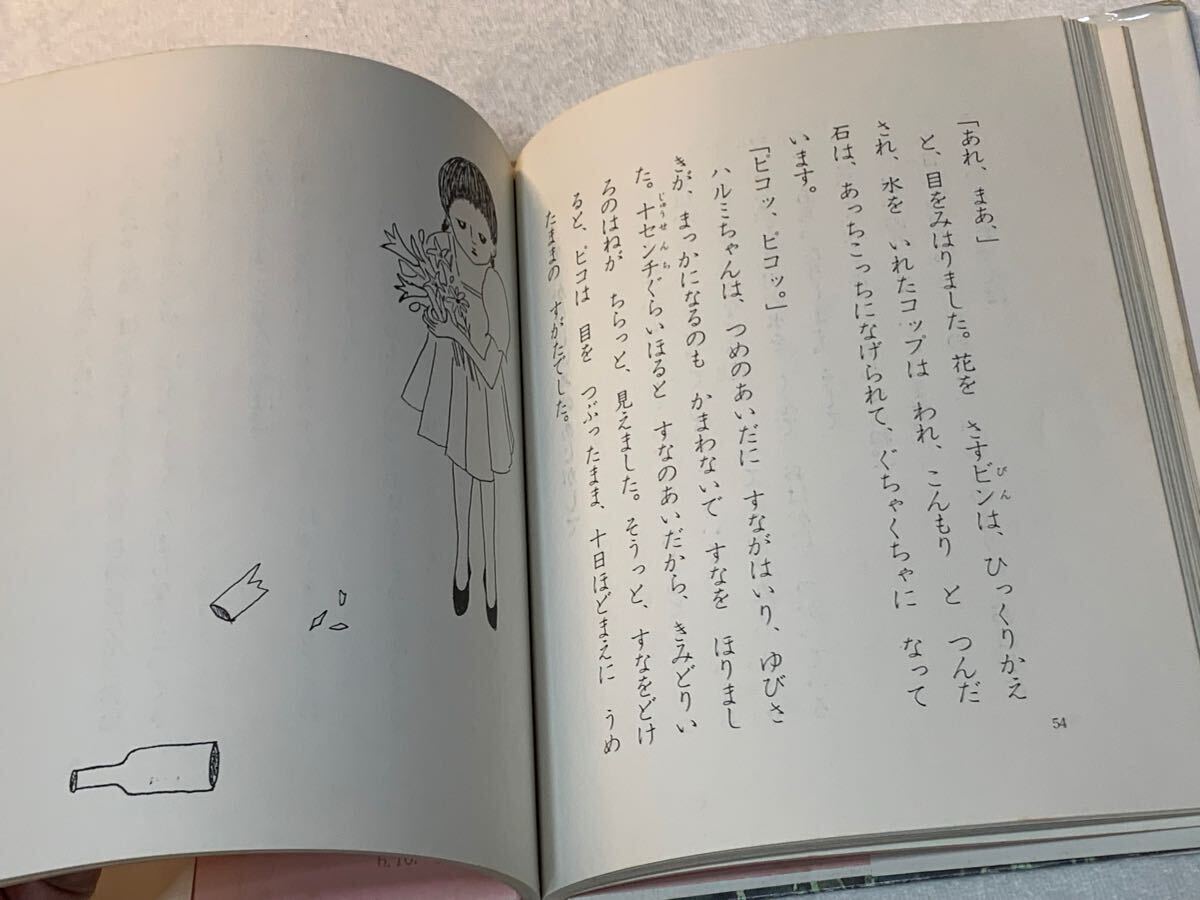 「あれ、まあ、」
と、目をみはりました。花を　さすビンは、ひっくりかえ
され、水を　いれたコップは　われ、こんもり　と　つんだ
石は、あっちこっちになげられて、ぐちゃくちゃに　なって
います。
「ピコッ、ピコッ。」
ハルミちゃんは、つめのあいだに　すながはいり、ゆびさ
きが、まっかになるのも　かまわないで　すなを　ほりまし
た。十センチぐらいほると　すなのあいだから、きみどりい
ろのはねが　ちらっと、見えました。そうっと、すなをどけ
ると、ピコは　目を　つぶったまま、十日ほどまえに　うめ
たままの　すがたでした。
びん
じゅうせんち
54